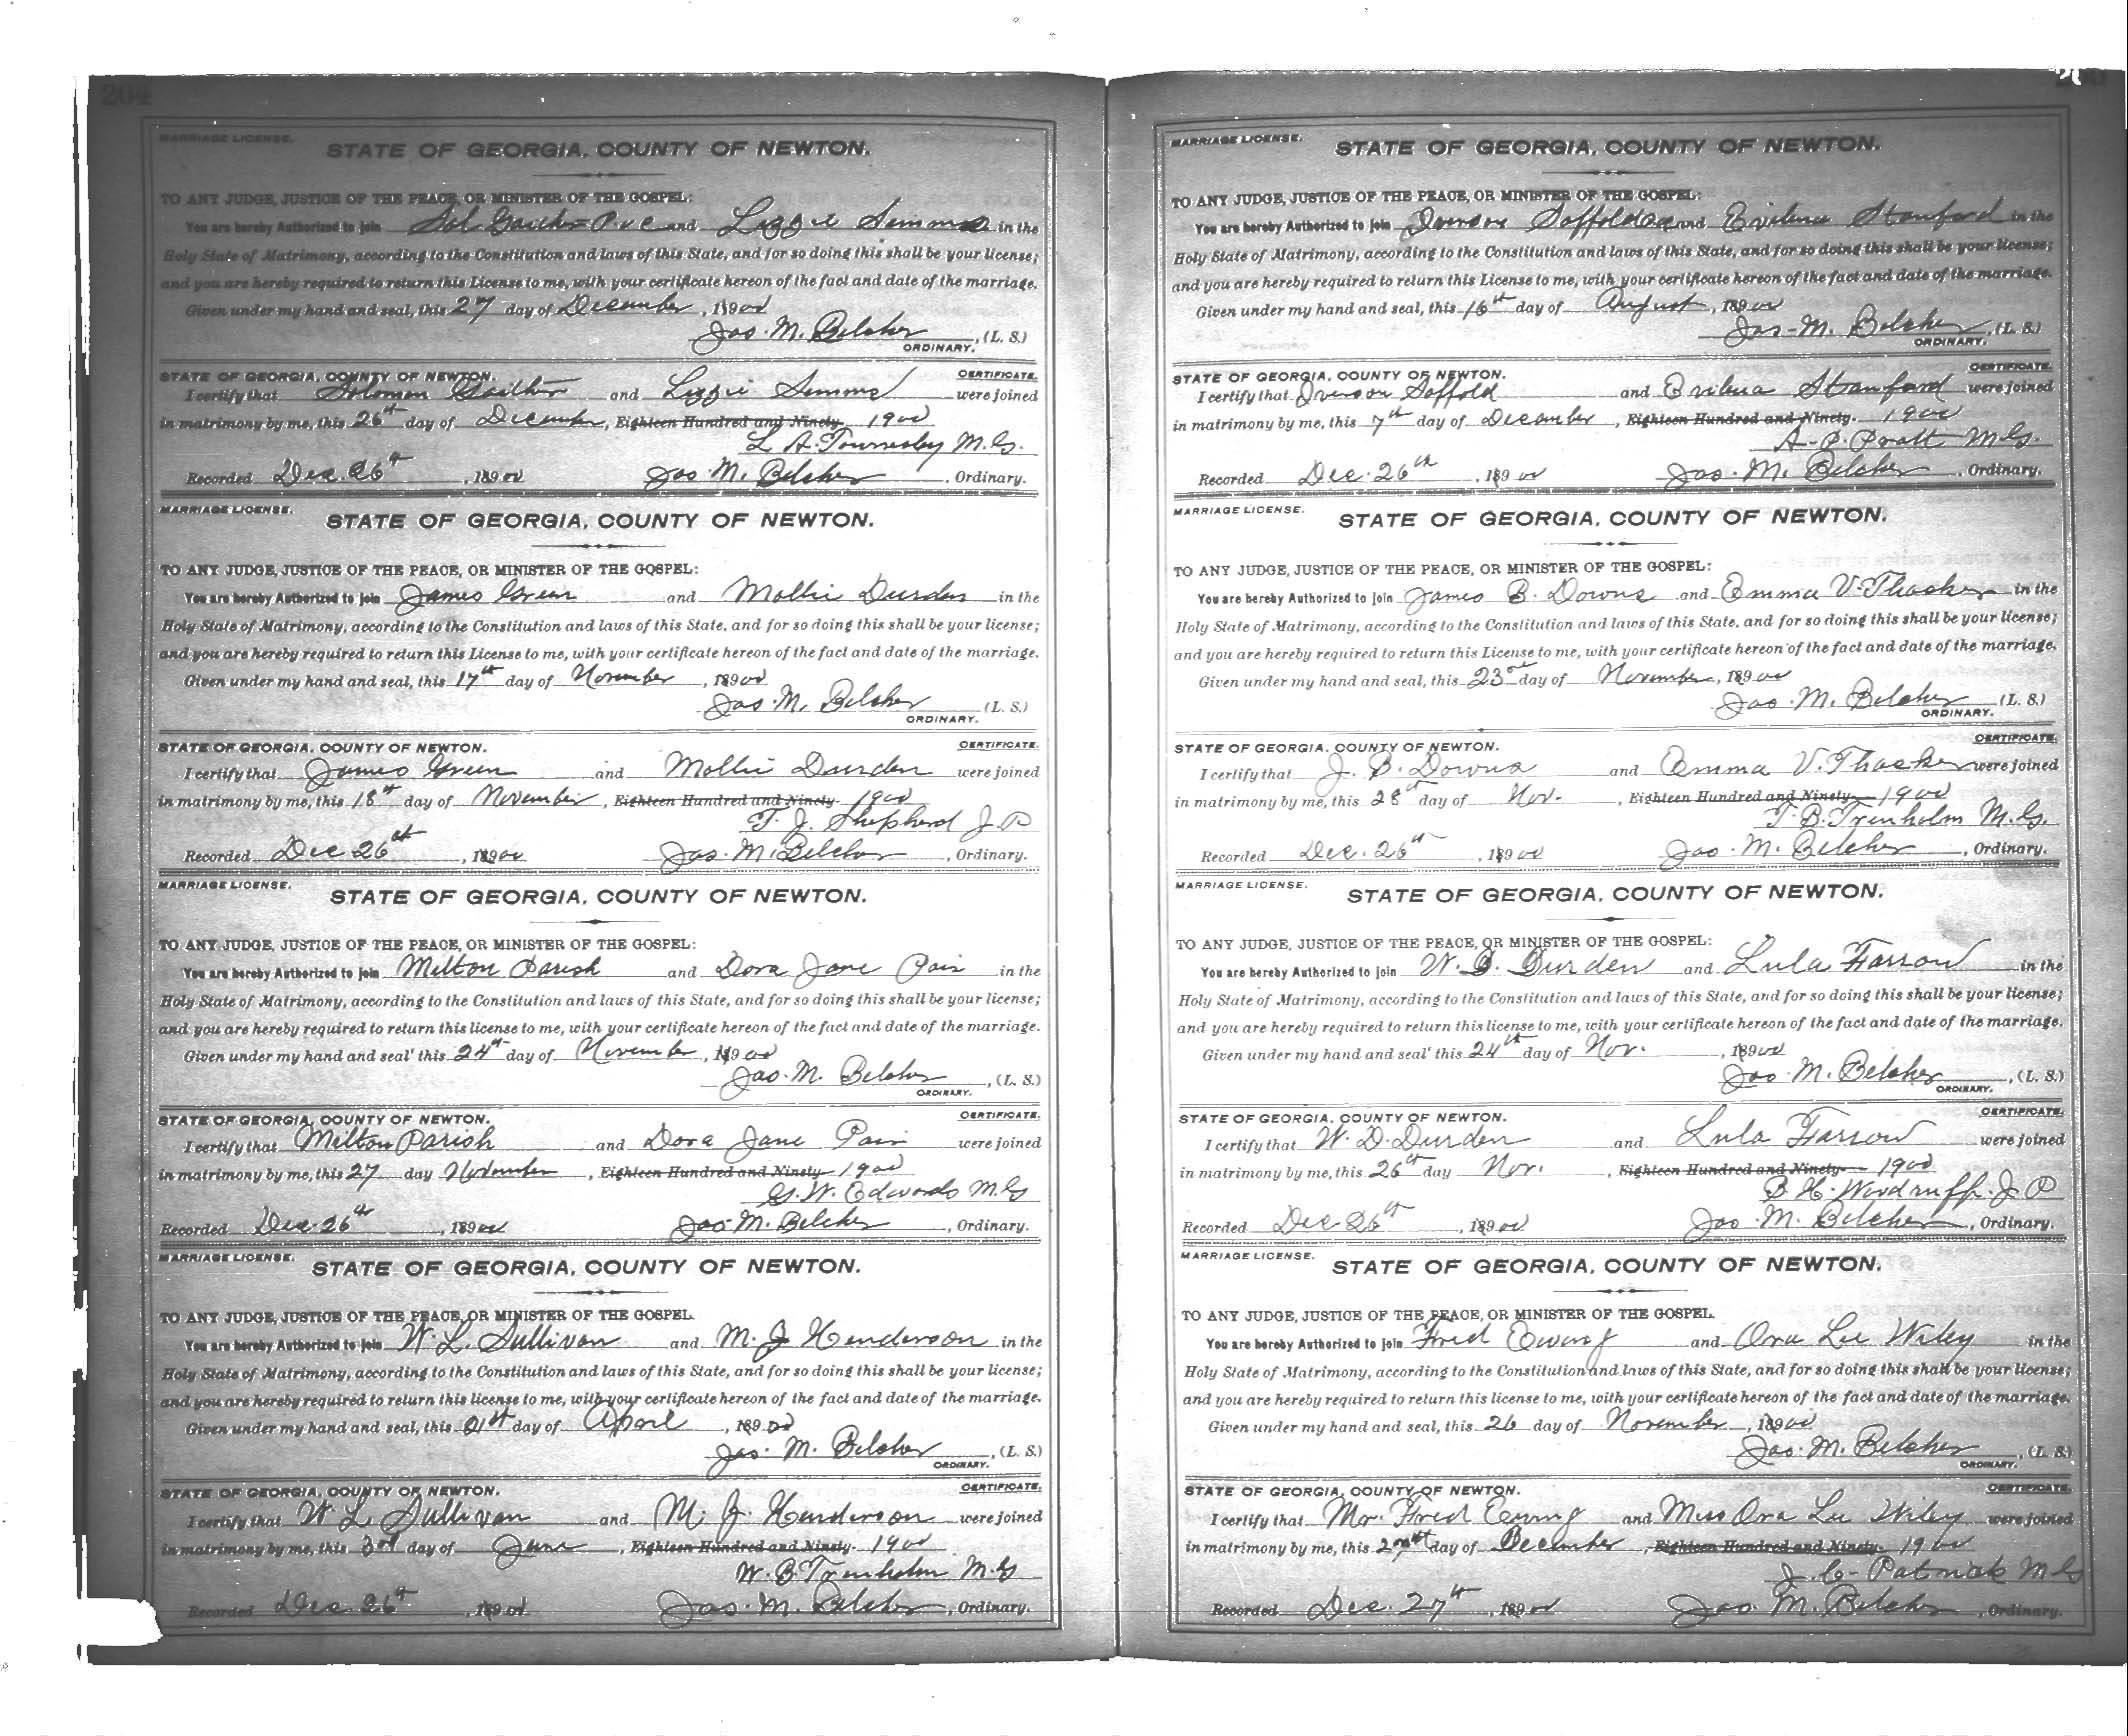 204
MARRIAGE LICENSE.
STATE OF GEORGIA, COUNTY OF NEWTON.
TO ANY JUDGE, JUSTICE OF THE PEACE, OR MINISTER OF THE GOSPEL:
You are hereby Authorized to join Sol and Lizzie Simms in the
Holy State of Matrimony, according to the Constitution and laws of this State, and for so doing this shall be your license;
and you are hereby required to return this License to me, with your certificate hereon of the fact and date of the marriage.
Given under my hand and seal, this 27 day of December, 1900
Jas. M. Belcher, (L. S.)
ORDINARY.
STATE OF GEORGIA, COUNTY OF NEWTON. CERTIFICATE.
I certify that Solomon Gaither and Lizzie Simms were joined
in matrimony by me, this 26th day of December, Eighteen Hundred and Ninety 1900
L. A. Townsley M.G.
Recorded Dec. 26th, 1900 Jas. M. Belcher, Ordinary.
MARRIAGE LICENSE.
STATE OF GEORGIA, COUNTY OF NEWTON.
TO ANY JUDGE, JUSTICE OF THE PEACE, OR MINISTER OF THE GOSPEL:
You are hereby Authorized to join James Green and Mollie Durden in the
Holy State of Matrimony, according to the Constitution and laws of this State, and for so doing this shall be your license;
and you are hereby required to return this License to me, with your certificate hereon of the fact and date of the marriage.
Given under my hand and seal, this 17th day of November, 1900
Jas. M. Belcher (L. S.)
ORDINARY.
STATE OF GEORGIA, COUNTY OF NEWTON. CERTIFICATE.
I certify that James Green and Mollie Durden were joined
in matrimony by me, this 18th day of November, Eighteen Hundred and Ninety 1900
T. J. Shepherd J.P
Recorded Dec 26th, 1900 Jas. M. Belcher, Ordinary.
MARRIAGE LICENSE.
STATE OF GEORGIA, COUNTY OF NEWTON.
TO ANY JUDGE, JUSTICE OF THE PEACE, OR MINISTER OF THE GOSPEL:
You are hereby Authorized to join Milton Parish and Dora Jane Pair in the
Holy State of Matrimony, according to the Constitution and laws of this State, and for so doing this shall be your license;
and you are hereby required to return this license to me, with your certificate hereon of the fact and date of the marriage.
Given under my hand and seal' this 24th day of November, 1900
Jas. M. Belcher, (L. S.)
ORDINARY.
STATE OF GEORGIA, COUNTY OF NEWTON. CERTIFICATE.
I certify that Milton Parish and Dora Jane Pair were joined
in matrimony by me, this 27 day November, Eighteen Hundred and Ninety 1900
G. W. Edwards M.G
Recorded Dec. 26th, 1900 Jas. M. Belcher, Ordinary.
MARRIAGE LICENSE.
STATE OF GEORGIA, COUNTY OF NEWTON.
TO ANY JUDGE, JUSTICE OF THE PEACE, OR MINISTER OF THE GOSPEL.
You are hereby Authorized to join W. L. Sullivan and M. J Henderson in the
Holy State of Matrimony, according to the Constitution and laws of this State, and for so doing this shall be your license;
and you are hereby required to return this license to me, with your certificate hereon of the fact and date of the marriage.
Given under my hand and seal, this 21st day of April, 1900
Jas. M. Belcher, (L. S.)
ORDINARY.
STATE OF GEORGIA, COUNTY OF NEWTON. CERTIFICATE.
I certify that W. L. Sullivan and M. J. Henderson were joined
in matrimony by me, this 3rd day of June, Eighteen Hundred and Ninety 1900
W. B. Trenholm M.G
Recorded Dec. 26th, 1900 Jas. M. Belcher, Ordinary.
MARRIAGE LICENSE.
STATE OF GEORGIA, COUNTY OF NEWTON.
TO ANY JUDGE, JUSTICE OF THE PEACE, OR MINISTER OF THE GOSPEL:
You are hereby Authorized to join Iverson Saffold and Evilena Stanford in the
Holy State of Matrimony, according to the Constitution and laws of this State, and for so doing this shall be your license;
and you are hereby required to return this License to me, with your certificate hereon of the fact and date of the marriage.
Given under my hand and seal, this 16th day of August, 1900
Jas. M. Belcher, (L. S.)
ORDINARY.
STATE OF GEORGIA, COUNTY OF NEWTON. CERTIFICATE.
I certify that Iverson Saffold and Evilena Stanford were joined
in matrimony by me, this 7th day of December, Eighteen Hundred and Ninety 1900
A. P. Pratt M.G.
Recorded Dec. 26th, 1900 Jas. M. Belcher, Ordinary.
MARRIAGE LICENSE.
STATE OF GEORGIA, COUNTY OF NEWTON.
TO ANY JUDGE, JUSTICE OF THE PEACE, OR MINISTER OF THE GOSPEL:
You are hereby Authorized to join James B. Downs and Emma V. Thacker in the
Holy State of Matrimony, according to the Constitution and laws of this State, and for so doing this shall be your license;
and you are hereby required to return this License to me, with your certificate hereon of the fact and date of the marriage.
Given under my hand and seal, this 23rd day of November, 1900
Jas. M. Belcher (L. S.)
ORDINARY.
STATE OF GEORGIA, COUNTY OF NEWTON. CERTIFICATE.
I certify that J. B. Downs and Emma V. Thacker were joined
in matrimony by me, this 28th day of Nov., Eighteen Hundred and Ninety 1900
T. B. Trenholm M.G.
Recorded Dec. 26th, 1900 Jas. M. Belcher, Ordinary.
MARRIAGE LICENSE.
STATE OF GEORGIA, COUNTY OF NEWTON.
TO ANY JUDGE, JUSTICE OF THE PEACE, OR MINISTER OF THE GOSPEL:
You are hereby Authorized to join W. D. Durden and Lula Farrow in the
Holy State of Matrimony, according to the Constitution and laws of this State, and for so doing this shall be your license;
and you are hereby required to return this license to me, with your certificate hereon of the fact and date of the marriage.
Given under my hand and seal' this 24th day of Nov., 1900
Jas. M. Belcher, (L. S.)
ORDINARY.
STATE OF GEORGIA, COUNTY OF NEWTON. CERTIFICATE.
I certify that W. D. Durden and Lula Farrow were joined
in matrimony by me, this 26th day Nov., Eighteen Hundred and Ninety 1900
B. H. Woodruff. J P
Recorded Dec 26th, 1900 Jas. M. Belcher, Ordinary.
MARRIAGE LICENSE.
STATE OF GEORGIA, COUNTY OF NEWTON.
TO ANY JUDGE, JUSTICE OF THE PEACE, OR MINISTER OF THE GOSPEL.
You are hereby Authorized to join Fred Ewing and Ora Lee Wiley in the
Holy State of Matrimony, according to the Constitution and laws of this State, and for so doing this shall be your license;
and you are hereby required to return this license to me, with your certificate hereon of the fact and date of the marriage.
Given under my hand and seal, this 26 day of November, 1900
Jas. M. Belcher, (L. S.)
ORDINARY.
STATE OF GEORGIA, COUNTY OF NEWTON. CERTIFICATE.
I certify that Mr. Fred Ewing and Miss Ora Lee Wiley were joined
in matrimony by me, this day of December, Eighteen Hundred and Ninety 1900
J. C. Patrick M G
Recorded Dec. 27th, 1900 Jas. M. Belcher, Ordinary.